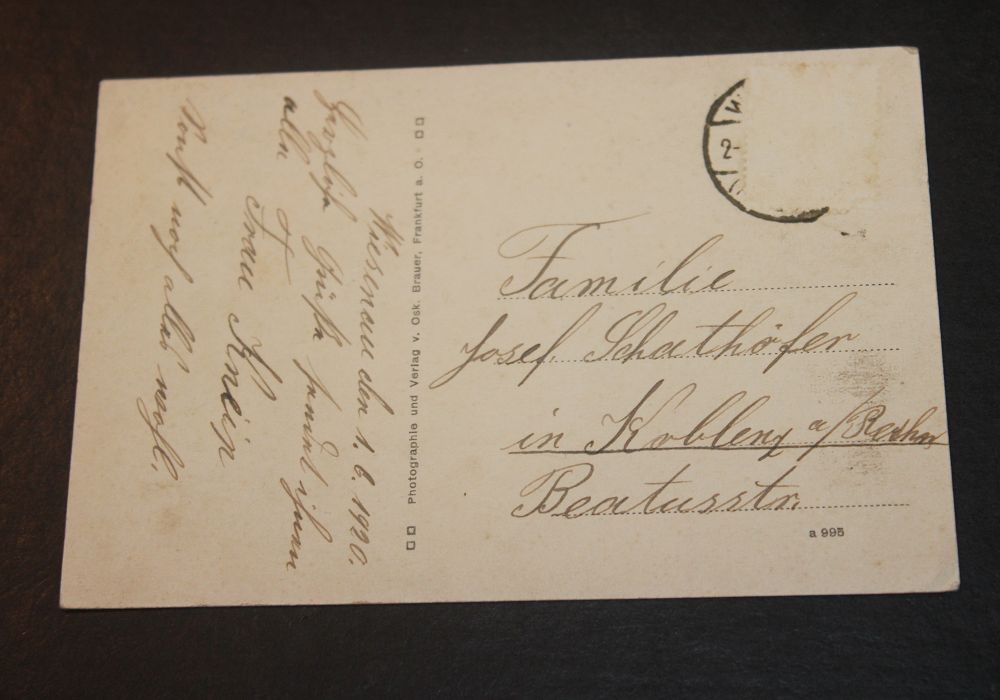 Wiesenau den 1. 6. 1920.
Herzliche Grüße sendet ihnen
allen
Frau Klein
Sonst noch alles wohl.
Photographie und Verlag v. Osk. Brauer, Frankfurt a. O.
2
Familie
Josef Schathöfer
in Koblenz a/Reihn
Beatusstr.
a 995